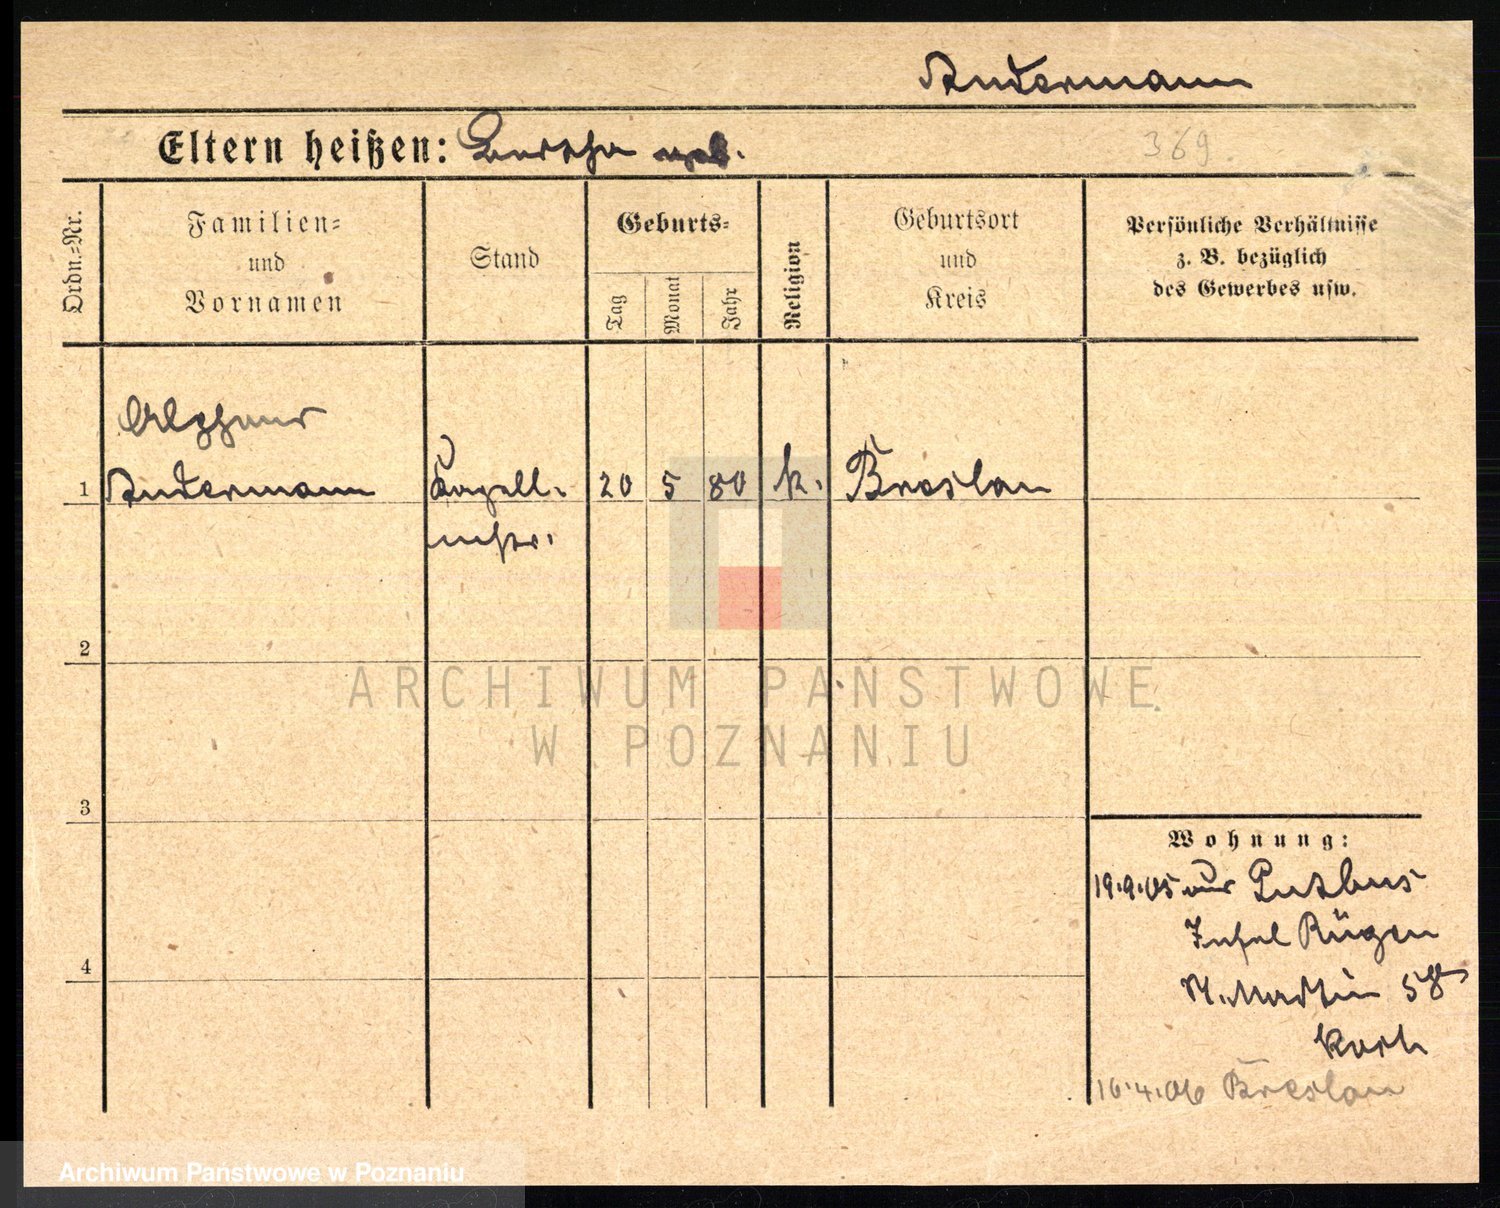 Andermann
Eltern heißen: Bertha geb.
369
Ordn.-Nr.
Familien-
und
Vornamen
Stand
Geburts-
Tag
Monat
Jahr
Religion
Geburtsort
und
Kreis
Persönliche Verhältnisse
z. B. bezüglich
des Gewerbes usw.
1
Andermann
Kapell-
mstr.
20
5
80
k.
Breslau
2
3
4
Wohnung:
19.9.05 aus Putbus
Insel Rügen
St. Martin 58
Koch
10.4.06 Breslau
ARCHIWUM PAŃSTWOWE
W POZNANIU
Archiwum Państwowe w Poznaniu